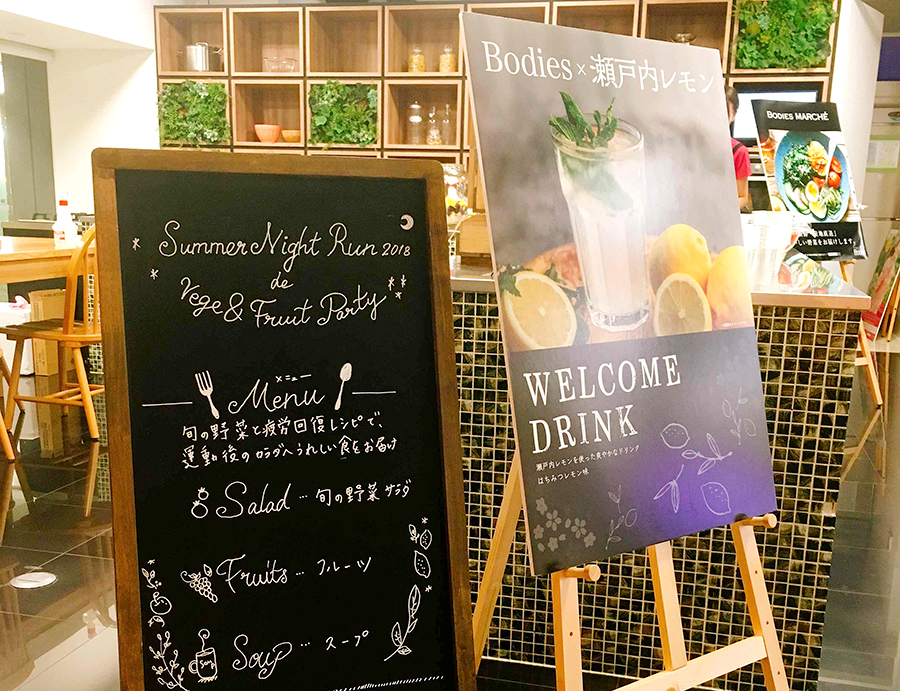 Summer Night Run 2018
de
Vege & Fruit Party
メニュー
Menu
旬の野菜と疲労回復レシピで、
運動後のカラダへうれしい食をお届け
Salad … 旬の野菜サラダ
Fruits … フルーツ
Soup … スープ
Soup
Bodies×瀬戸内レモン
WELCOME
DRINK
瀬戸内レモンを使った爽やかなドリンク
はちみつレモン味
BODIES MARCHÉ
しい野菜をお届けします